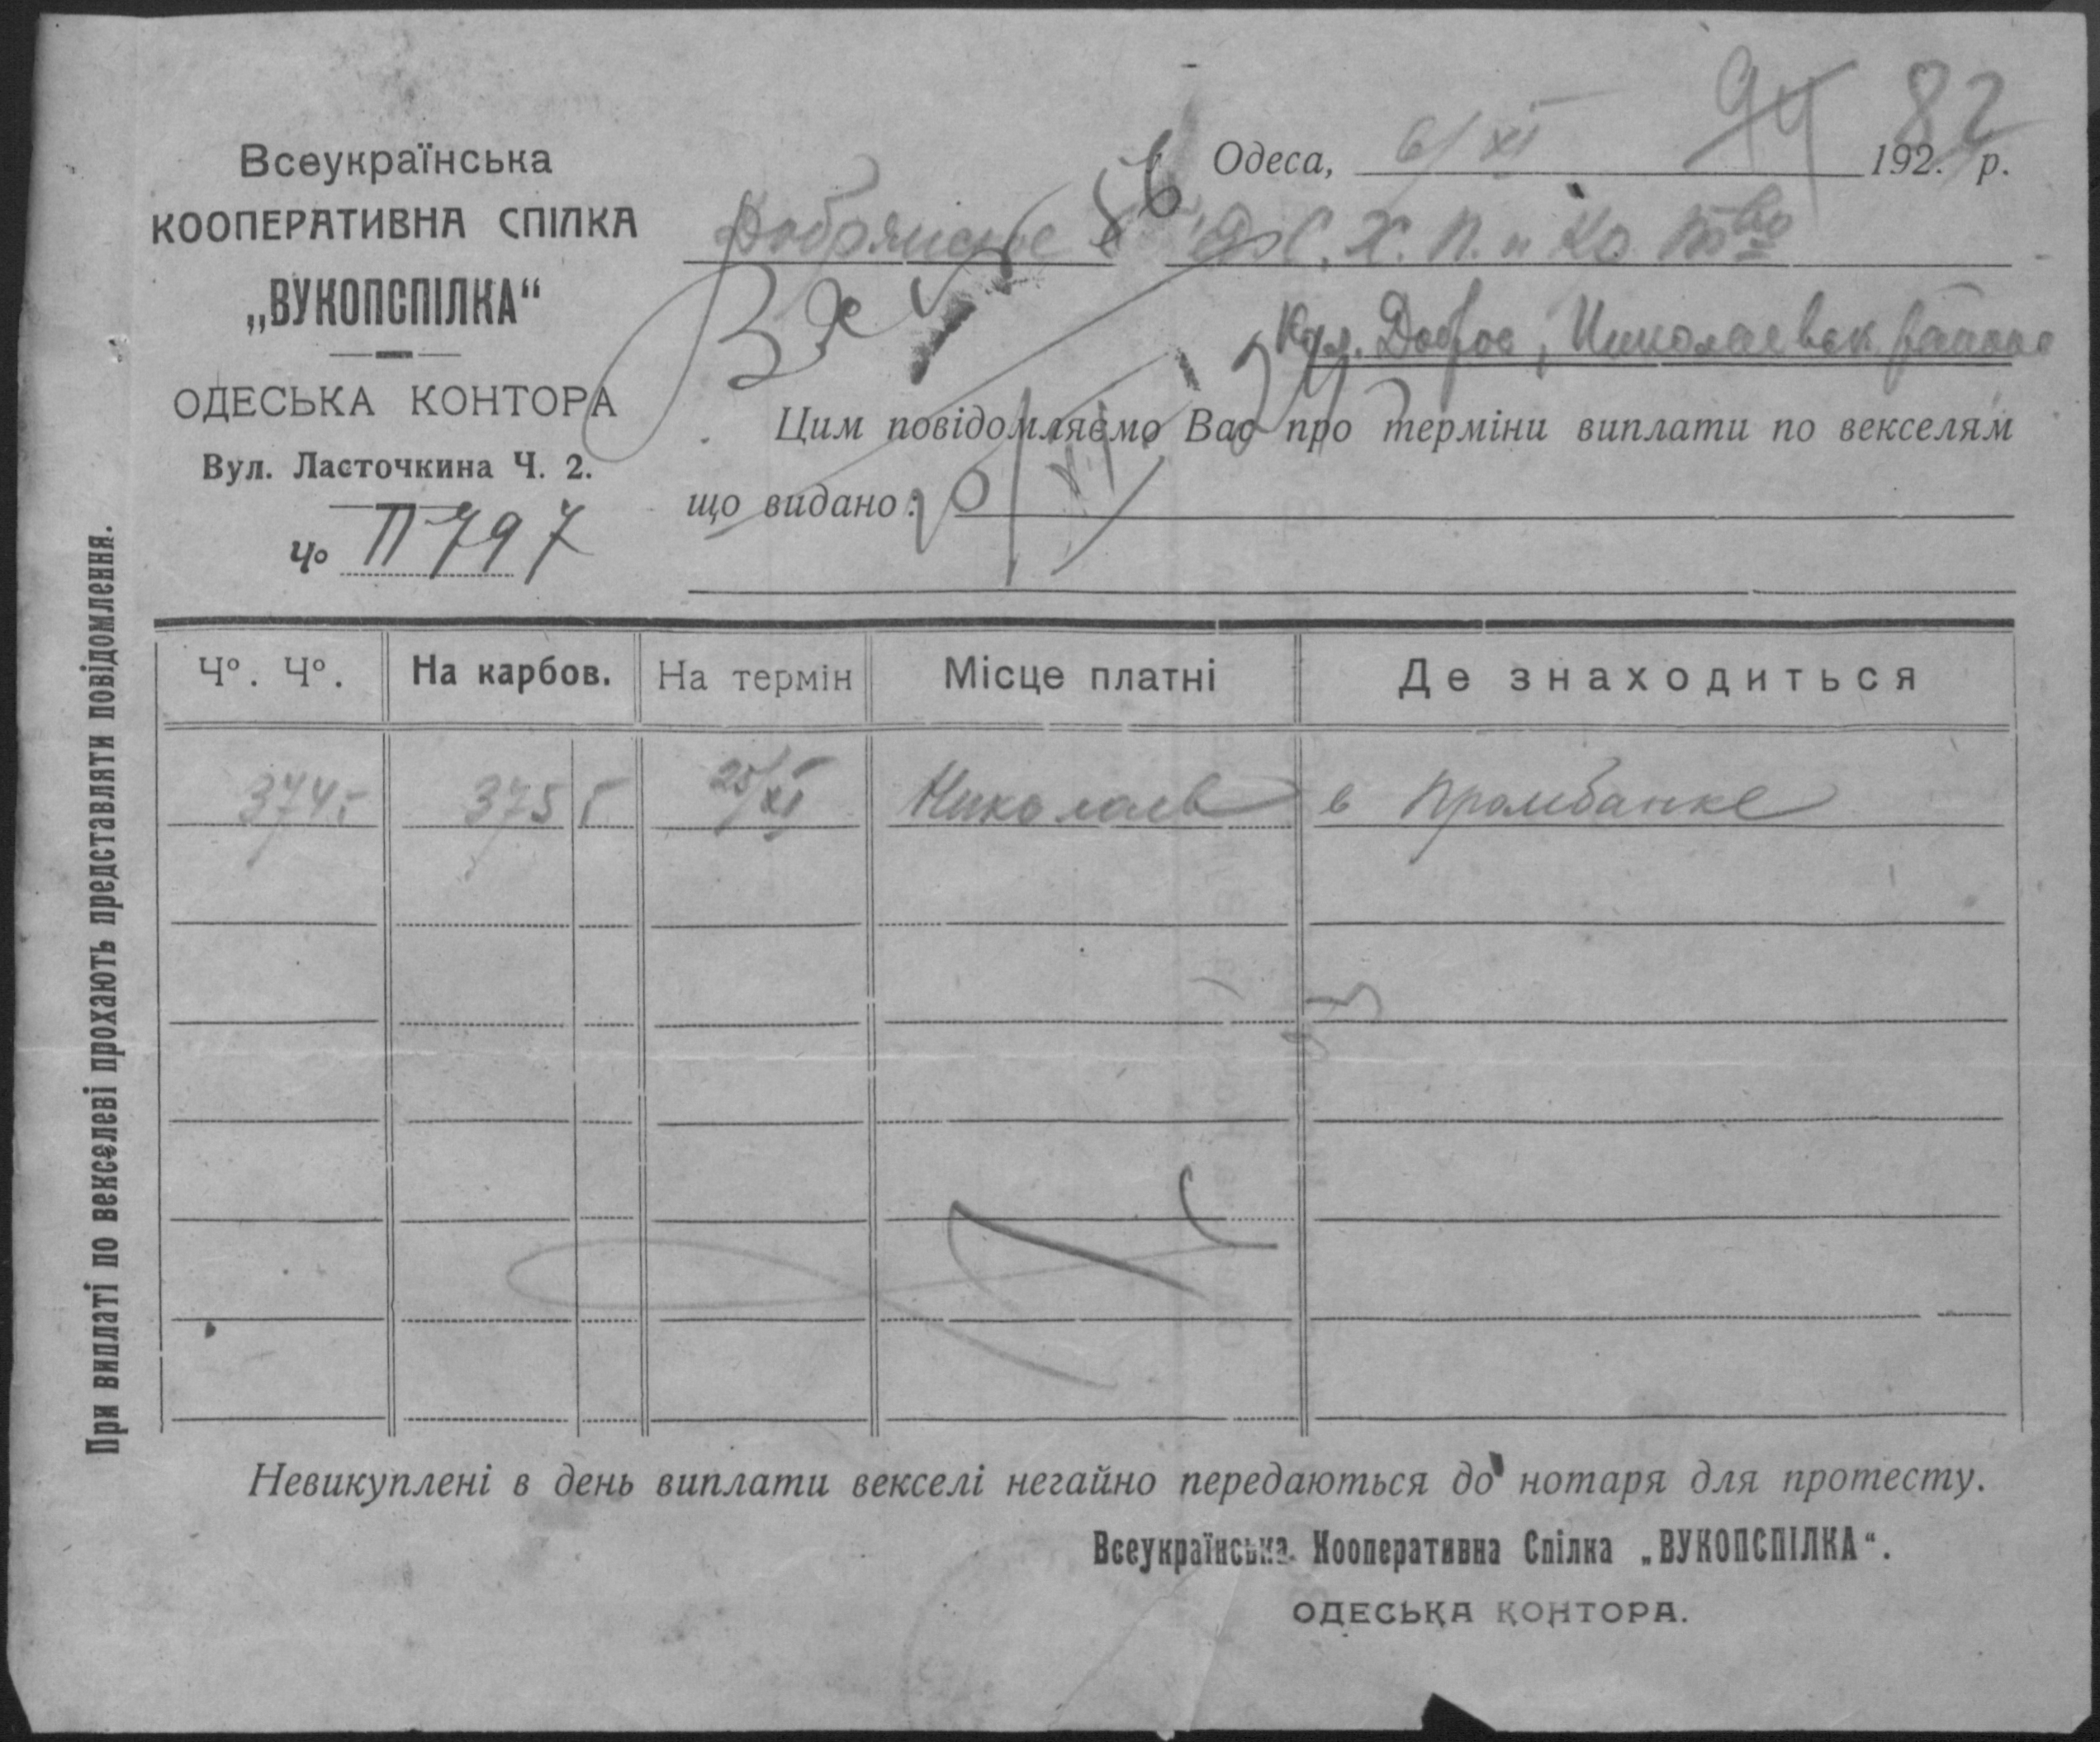 94 82
Всеукраїнська
КООПЕРАТИВНА СПІЛКА
„ВУКОПСПІЛКА“
ОДЕСЬКА КОНТОРА
Вул. Ласточкина Ч. 2.
Чо П 797
Одеса, 6/XI 192. р.
Добрянское С. Х. П. и Ко Тво
Кол. Доброе, Николаевск района
Цим повідомляємо Вас про терміни виплати по векселям
що видано:
Чо. Чо. На карбов. На термін Місце платні Де знаходиться
3745 375 25/XI Николаев в Промбанке
Невикуплені в день виплати векселі негайно передаються до нотаря для протесту.
Всеукраїнська Кооперативна Спілка „ВУКОПСПІЛКА“.
ОДЕСЬКА КОНТОРА.
При виплаті по векселеві прохають представляти повідомлення.